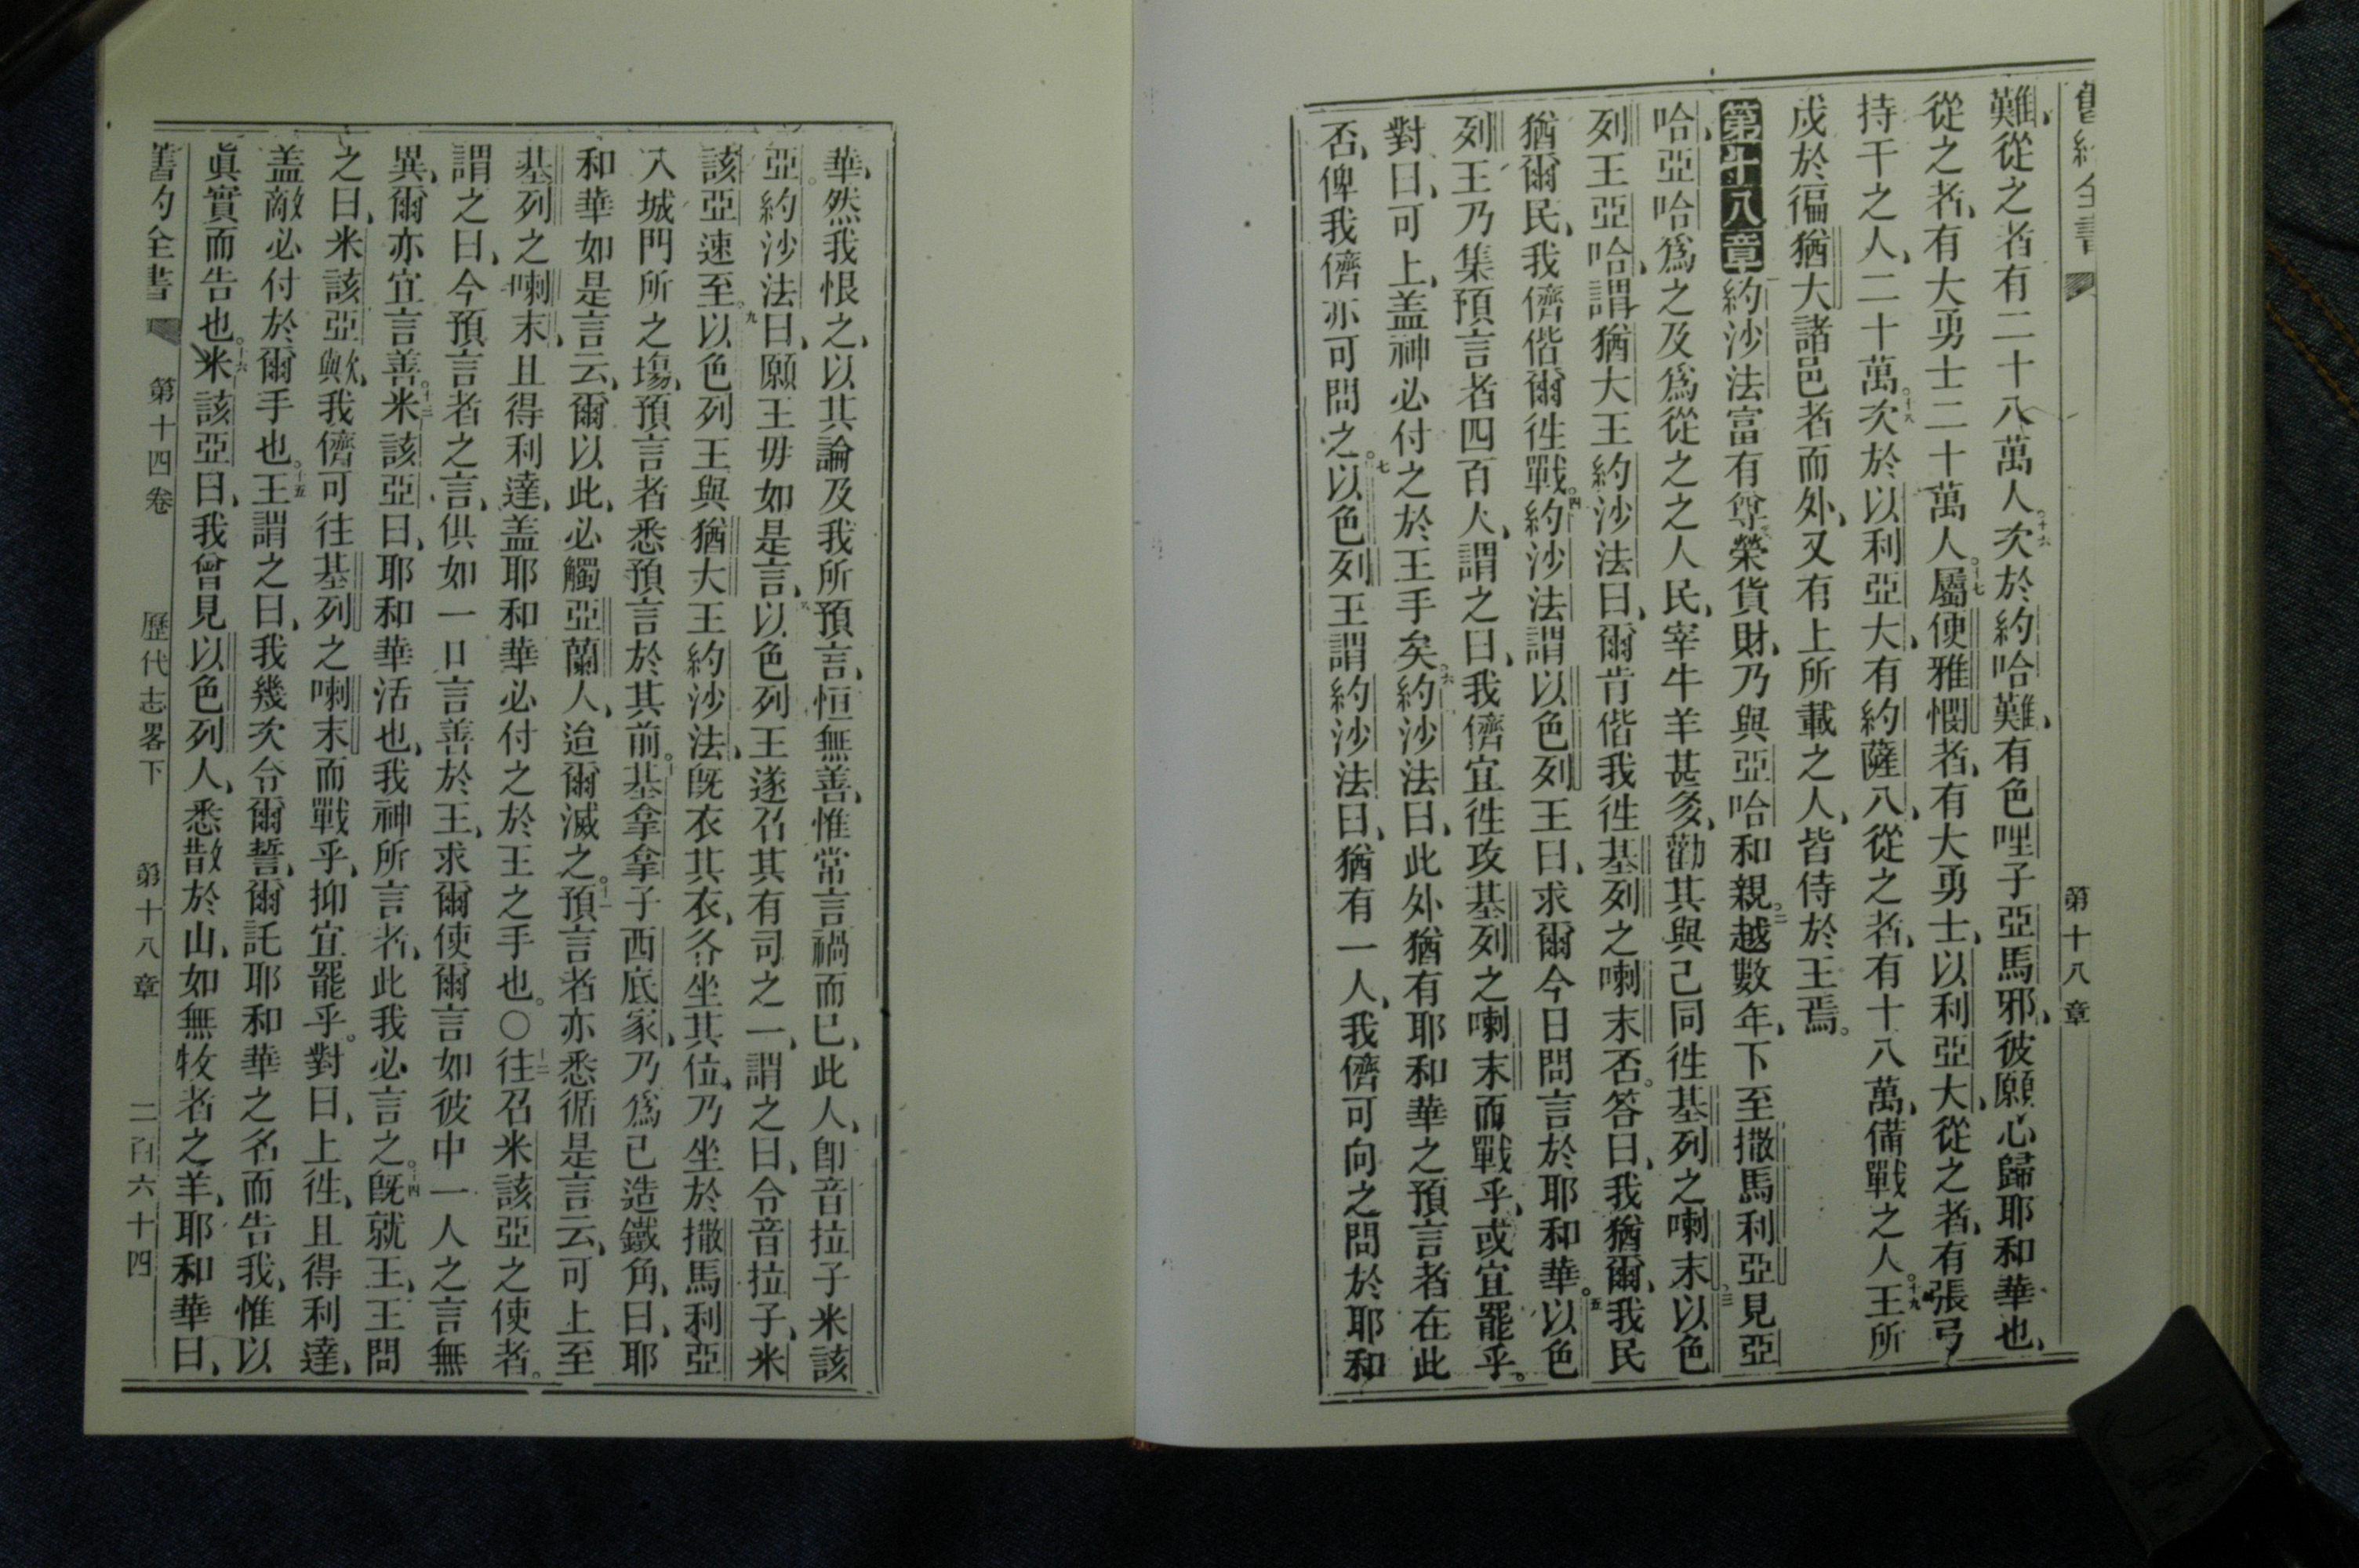 舊約全書 第十八章
難、從之者有二十八萬人。十六次於約哈難、有色哩子亞馬邪、彼願心歸耶和華也、
從之者、有大勇士二十萬人。十七屬便雅憫者、有大勇士、以利亞大、從之者、有張弓
持干之人、二十萬。十八次於以利亞大、有約薩八、從之者、有十八萬、備戰之人。十九王所
戍於徧猶大諸邑者而外、又有上所載之人、皆侍於王焉。
第十八章 一約沙法富有尊榮貨財、乃與亞哈和親。二越數年、下至撒馬利亞見亞
哈、亞哈爲之及爲從之之人民、宰牛羊甚多、勸其與己同徃基列之喇末。三以色
列王亞哈、謂猶大王約沙法曰、爾肯偕我徃基列之喇末否。答曰、我猶爾、我民
猶爾民、我儕偕爾徃戰。四約沙法謂以色列王曰、求爾今日問言於耶和華。五以色
列王乃集預言者四百人、謂之曰、我儕宜徃攻基列之喇末而戰乎、或宜罷乎。
對曰、可上、盖神必付之於王手矣。六約沙法曰、此外猶有耶和華之預言者在此
否、俾我儕亦可問之。七以色列王謂約沙法曰、猶有一人、我儕可向之問於耶和
華、然我恨之、以其論及我所預言、恒無善、惟常言禍而已、此人、卽音拉子米該
亞。約沙法曰、願王毋如是言、八以色列王遂召其有司之一、謂之曰、令音拉子、米
該亞速至。九以色列王與猶大王約沙法、旣衣其衣、各坐其位、乃坐於撒馬利亞
入城門所之塲、預言者悉預言於其前。十基拿拿子西底家、乃爲己造鐵角、曰、耶
和華如是言云、爾以此、必觸亞蘭人、迨爾滅之。十一預言者亦悉循是言云、可上至
基列之喇末、且得利達、盖耶和華必付之於王之手也。○十二往召米該亞之使者。
謂之曰、今預言者之言、俱如一口言善於王、求爾使爾言如彼中一人之言無
異、爾亦宜言善。十三米該亞曰、耶和華活也、我神所言者、此我必言之。十四旣就王、王問
之曰、米該亞歟、我儕可往基列之喇末而戰乎、抑宜罷乎。對曰、上徃、且得利達、
盖敵必付於爾手也。十五王謂之曰、我幾次令爾誓、爾託耶和華之名而告我、惟以
眞實而告也。十六米該亞曰、我曾見以色列人、悉散於山、如無牧者之羊、耶和華曰、
舊約全書 第十四卷 歷代志畧下 第十八章 二百六十四